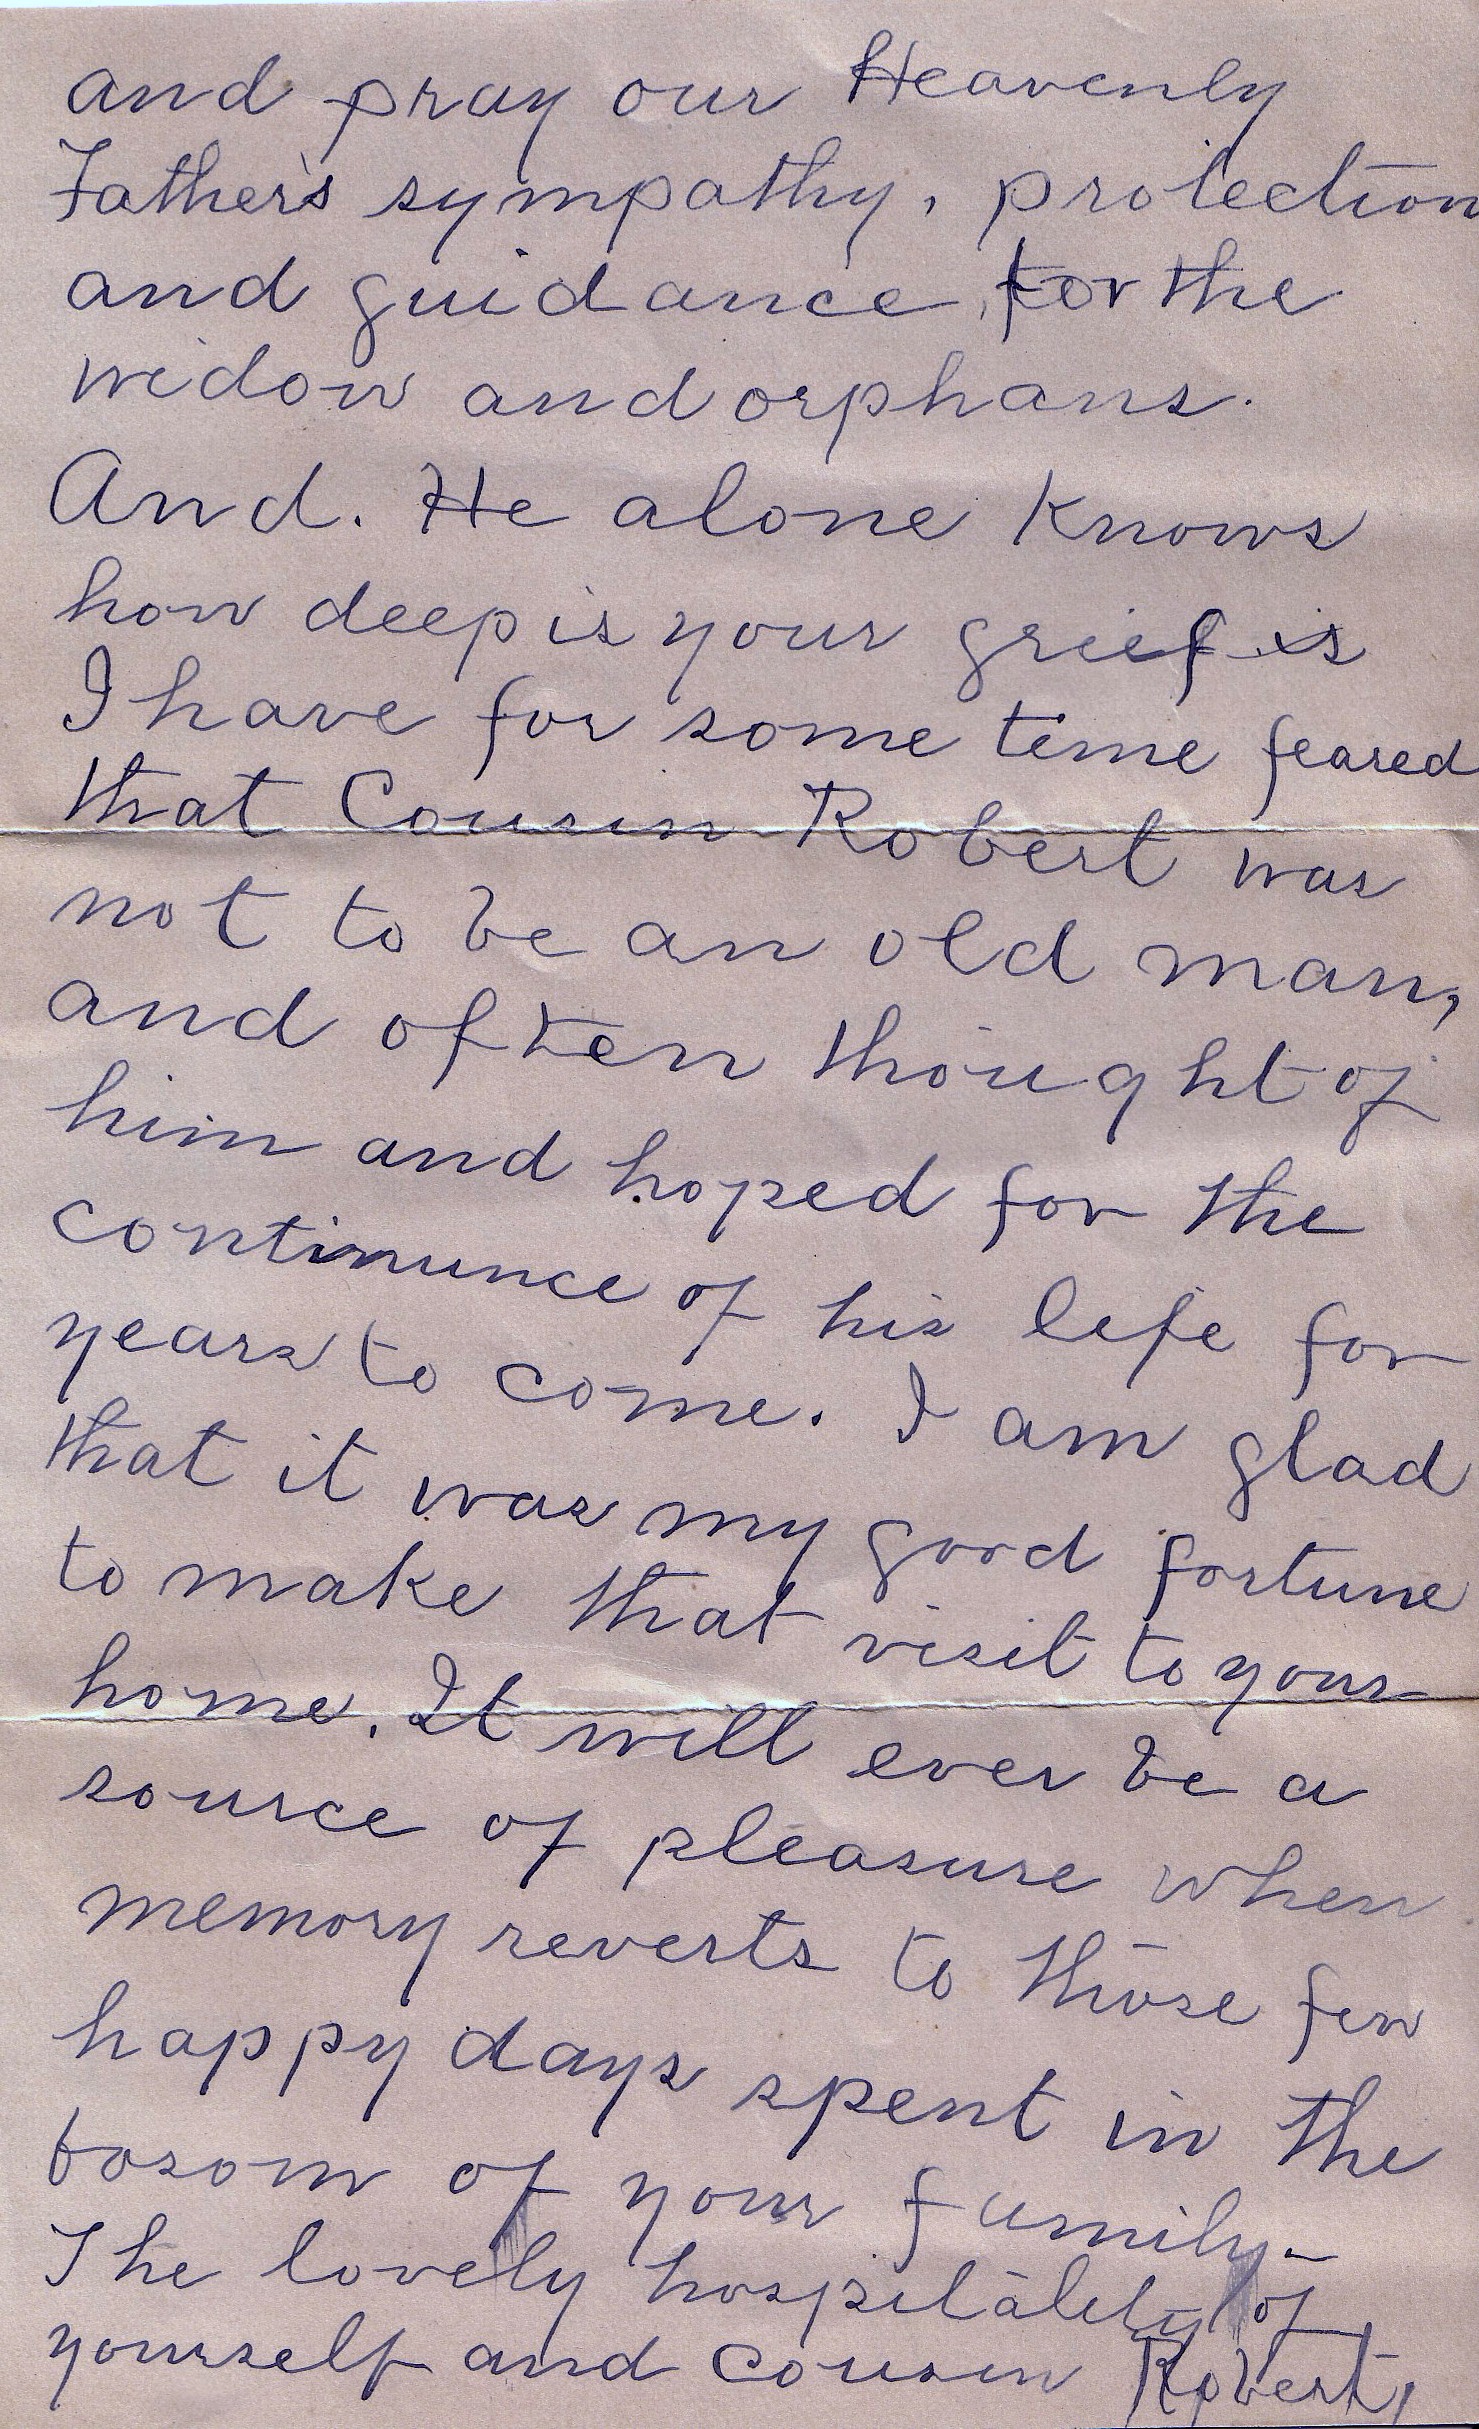 and pray our Heavenly
Father's sympathy, protection
and guidance, for the
widow and orphans.
And. He alone knows
how deep is your grief is
I have for some time feared
that Cousin Robert was
not to be an old man,
and often thought of
him and hoped for the
continunce of his life for
years to come. I am glad
that it was my good fortune
to make that visit to your
home. It will ever be a
source of pleasure when
memory reverts to those few
happy days spent in the
bosom of your family.
The lovely hospitality of
yourself and cousin Robert,